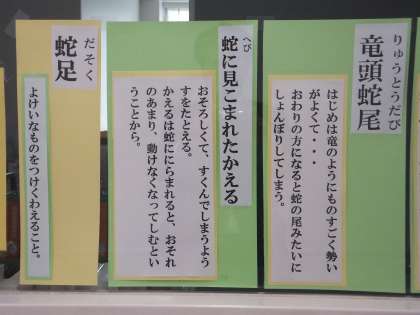 りゅうとうだび
竜頭蛇尾
はじめは竜のようにものすごく勢い
がよくて・・・
おわりの方になると蛇の尾みたいに
しょんぼりしてしまう。
へび
蛇に見こまれたかえる
おそろしくて、すくんでしまうよう
すをたとえる。
かえるは蛇ににらまれると、おそれ
のあまり、動けなくなってしむとい
うことから。
だそく
蛇足
よけいなものをつけくわえること。